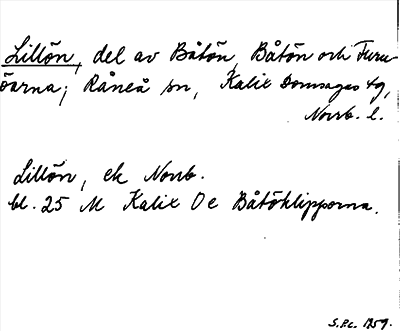 Lillön, del av Båtön, Båtön och Furu-
öarna; Råneå sn, Kalix Domsagas tg,
Norrb. l.
Lillön, ek Norrb.
bl. 25 M Kalix O e Båtöklipporna.
S.P.C. 1959.